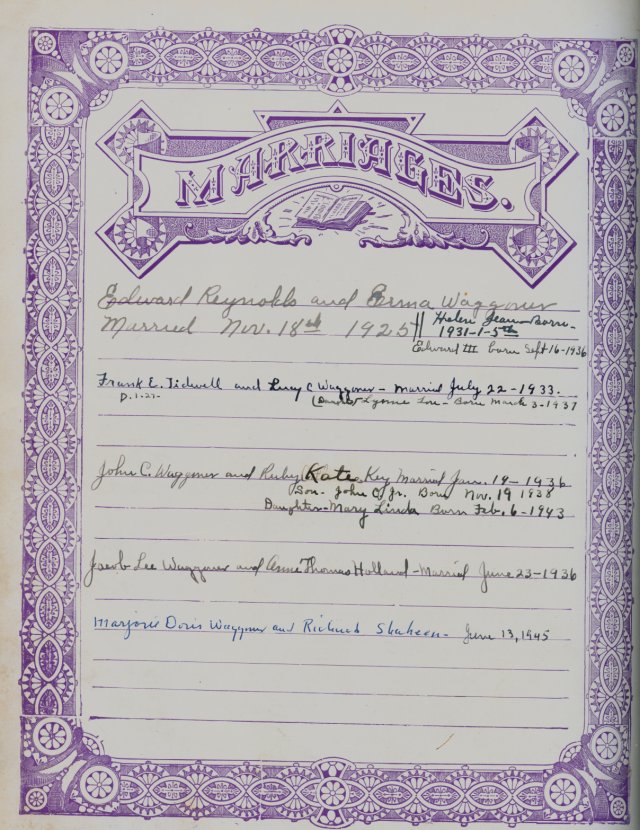 MARRIAGES.
Edward Reynolds and Erma Waggoner
Married Nov. 18th 1925 || Helen Jean Born-
1931-1-5th
Edward III born Sept 16-1936
Frank E. Tidwell and Lucy C Waggoner - Married July 22-1933.
(Daughter Lynne Lou - Born March 3-1937
John C. Waggoner and Ruby Kate Key Married Jan. 19-1936
Son- John C, Jr. Born Nov. 19 1938
Daughter-Mary Linda Born Feb. 6-1943
Jacob Lee Waggoner and Anne Thomas Holland - Married June 23-1936
Marjorie Doris Waggoner and Richard Shaheen - June 13, 1945